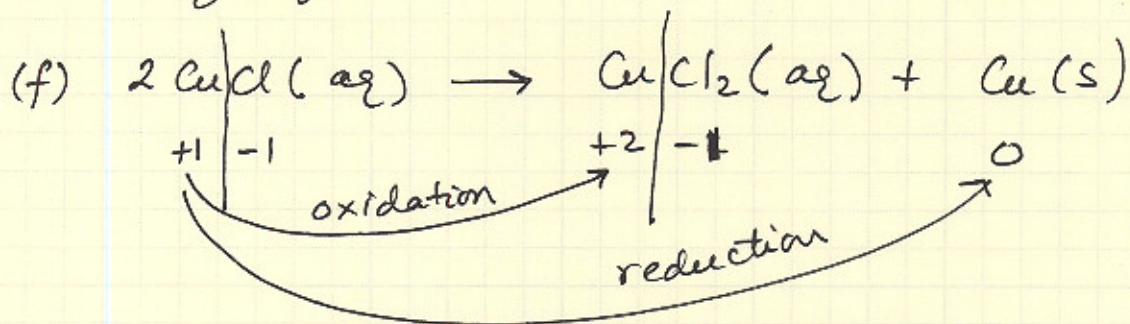 (f) 2 Cu|Cl (aq) → Cu|Cl₂ (aq) + Cu (s)
+1 | -1 +2 | -1 0
oxidation
reduction